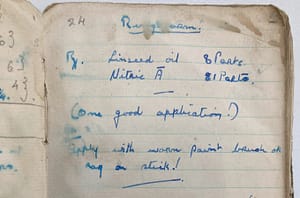 24
Ringworm.
63
63
43
Rx. Linseed oil 8 Parts.
Nitric A 1 Parts.
(One good application!)
Apply with worm paint brush or
rag on stick!